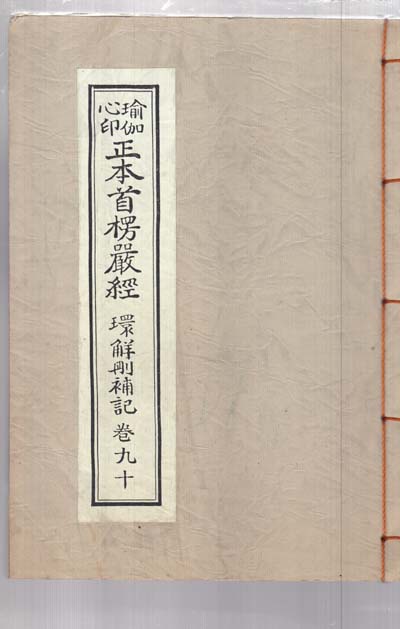 瑜伽心印
正本首楞嚴經
環解刪補記
卷九十